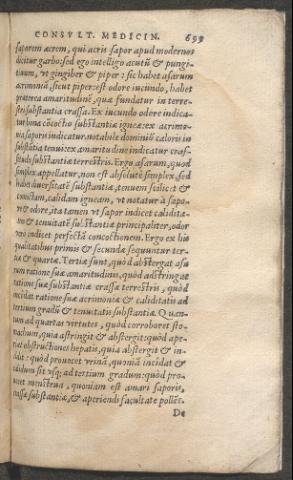 CONSVLT. MEDICIN. 699
saporem acrem, qui acris sapor apud modernos
dicitur garbo: sed ego intelligo acutũ & pungi-
tiuum, vt gingiber & piper: sic habet asarum
acrimoniã sicut piper: est odore iucundo, habet
præterea amaritudinẽ, quæ fundatur in terre-
stri substantia crassa. Ex iucundo odore indica-
tur bona cõcoctio substãtiæ igneæ: ex acrimo-
nia saporis indicatur notabile dominiũ caloris in
substãtia tenui: ex amaritudine indicatur cras-
situdo substantiæ terrestris. Ergo asarum, quod
simplex appellatur, non est absolutè simplex, sed
habet diuersitatẽ substantiæ, tenuem scilicet &
coctam, calidam igneam, vt notatur à sapo-
re & odore, ita tamen vt sapor indicet calidita-
tem & tenuitatẽ substantiæ principaliter, odor
verò indicet perfectã concoctionem. Ergo ex his
qualitatibus primis & secundæ sequuntur ter-
tiæ & quartæ. Tertiæ sunt, quòd abstergat asa-
rum ratione suæ amaritudinis, quòd adstringat
ratione suæ substantiæ crassæ terrestris, quòd
incidat ratione suæ acrimoniæ & caliditatis ad
tertium gradũ & tenuitatis substantiæ. Quan-
tum ad quartas virtutes, quòd corroboret sto-
machum, quia astringit & abstergit: quòd ape-
riat obstructiones hepatis, quia abstergit & in-
cidit: quòd prouocet vrinã, quoniã incidat &
calidum sit vsq; ad tertium gradum: quòd pro-
uocet menstrua, quoniam est amari saporis,
crassæ substantiæ, & aperiendi facultate pollẽt.
De